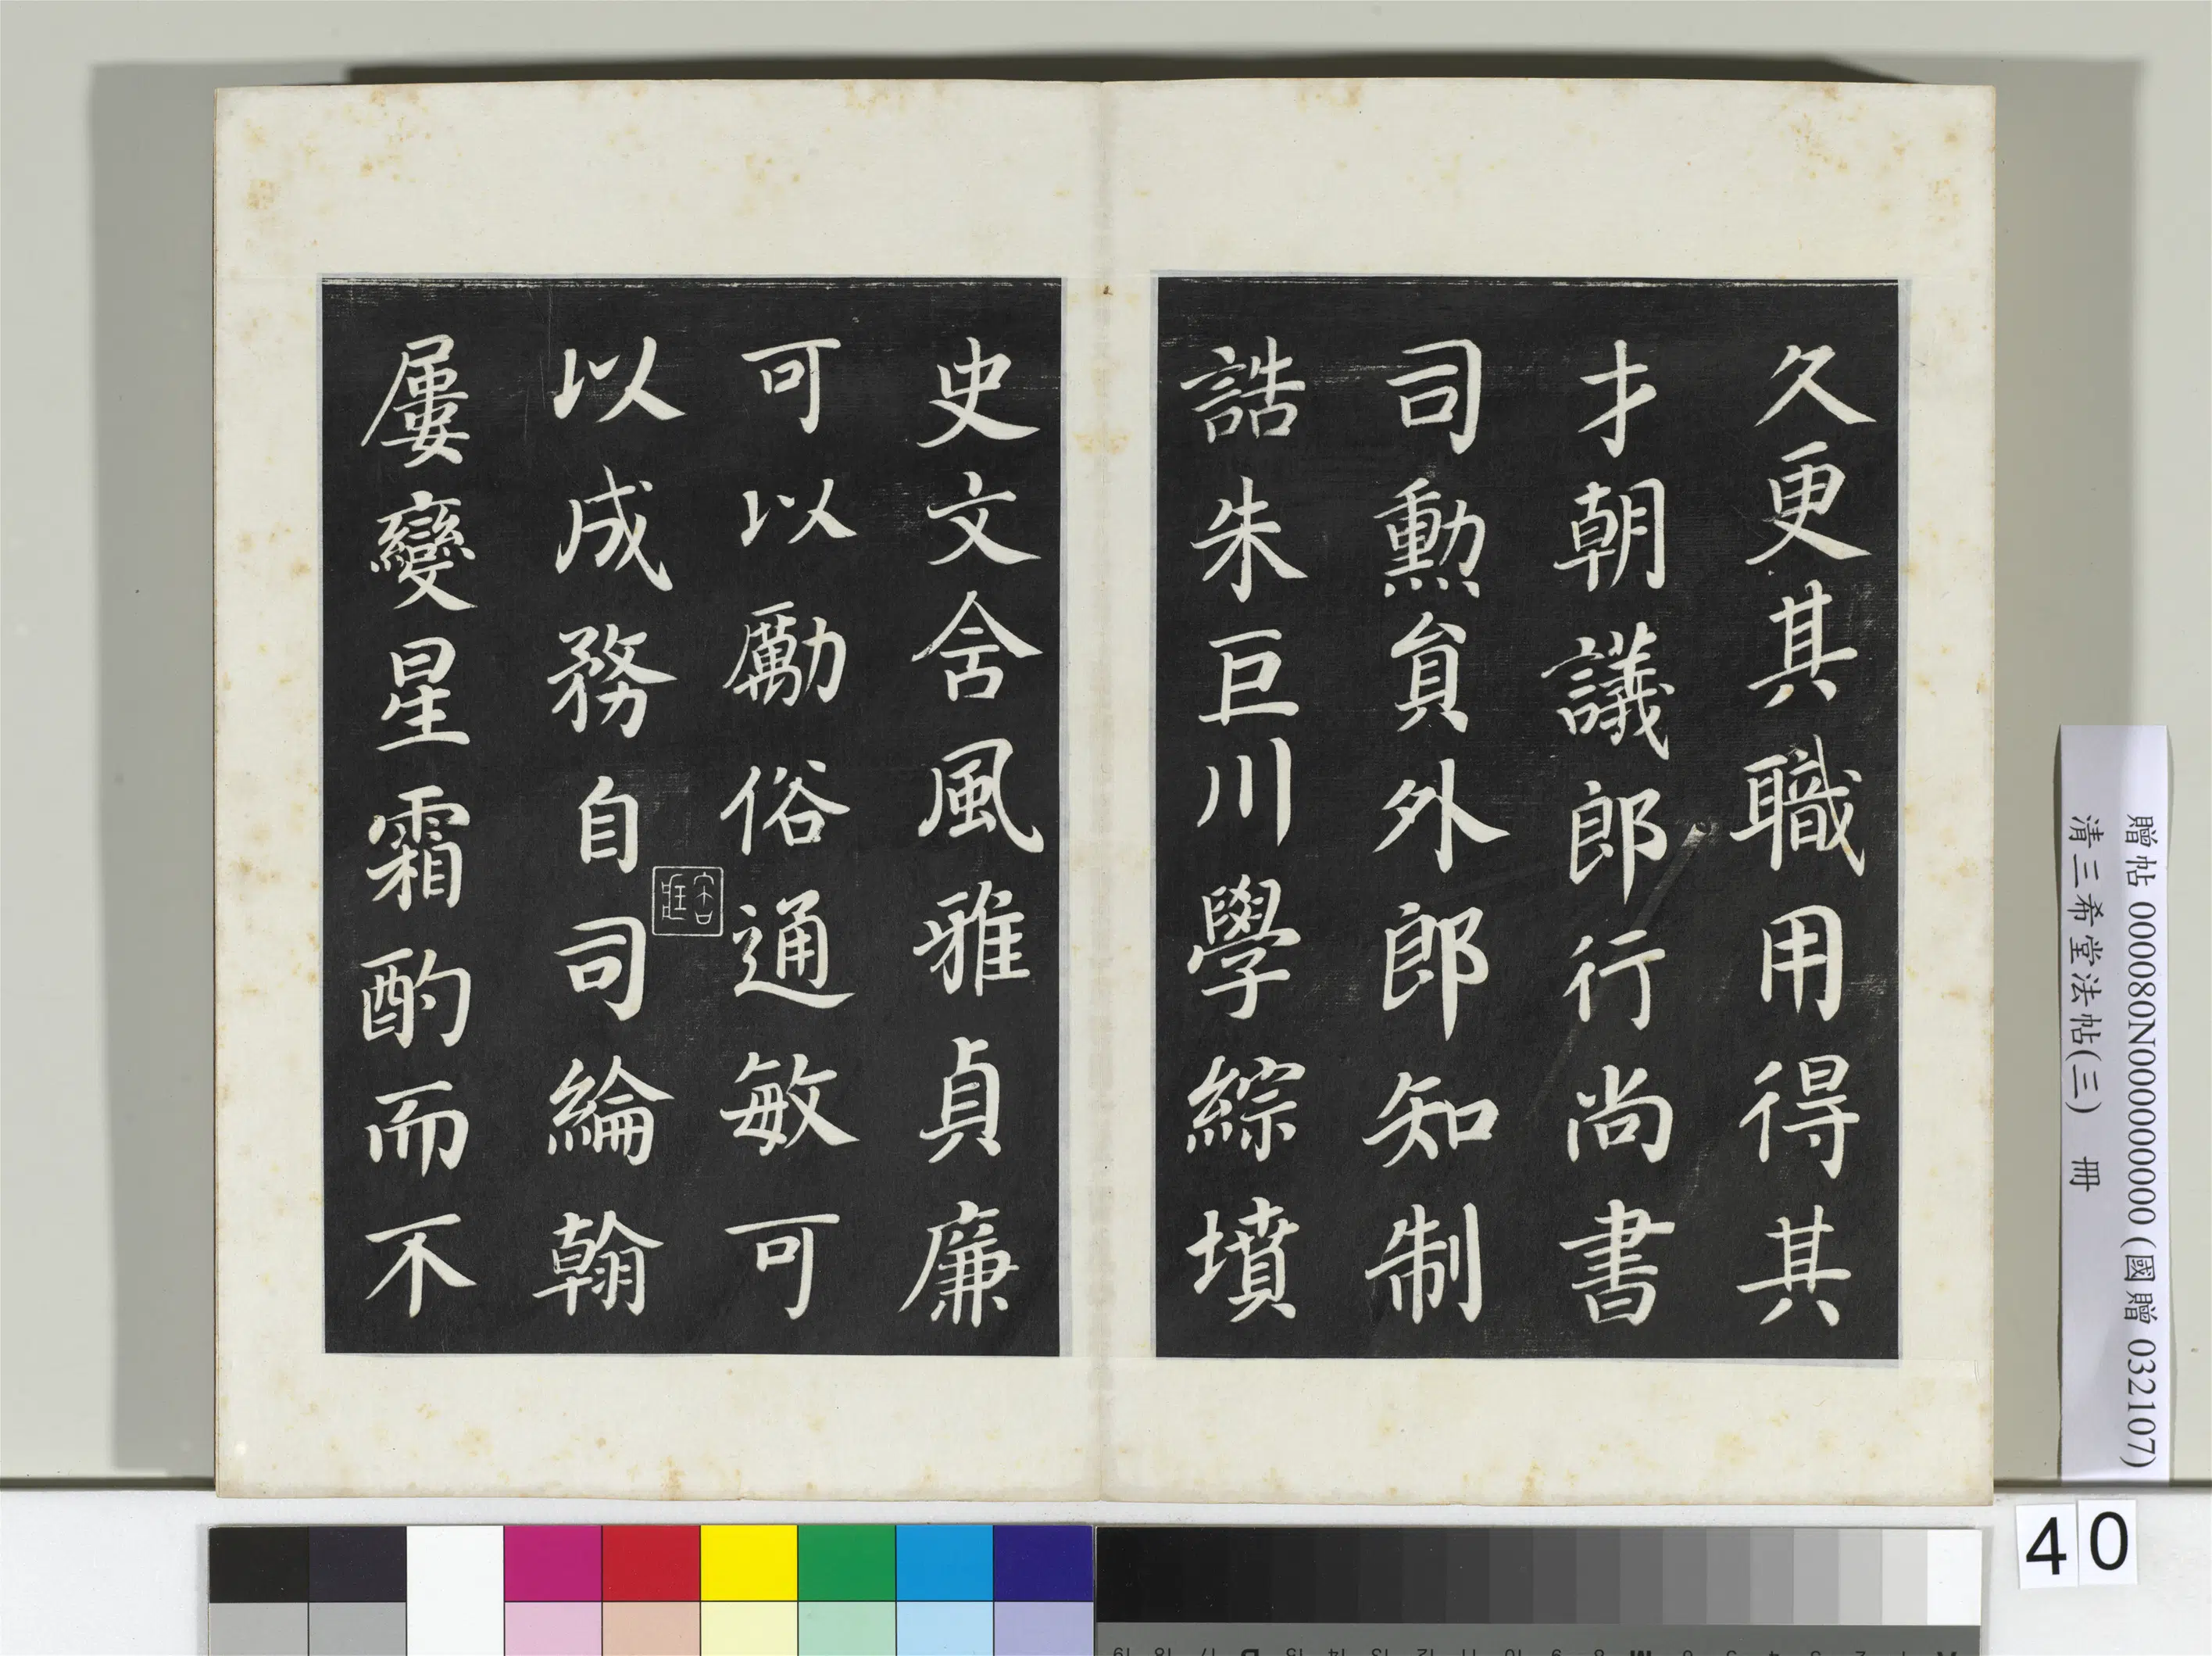 久更其職用得其
才朝議郎行尚書
司勳貟外郎知制
誥朱巨川學綜墳
史文舍風雅貞廉
可以勵俗通敏可
以成務自司綸翰
屢變星霜酌而不
贈帖 000080N000000000 (國贈 032107)
清三希堂法帖(三) 冊
40